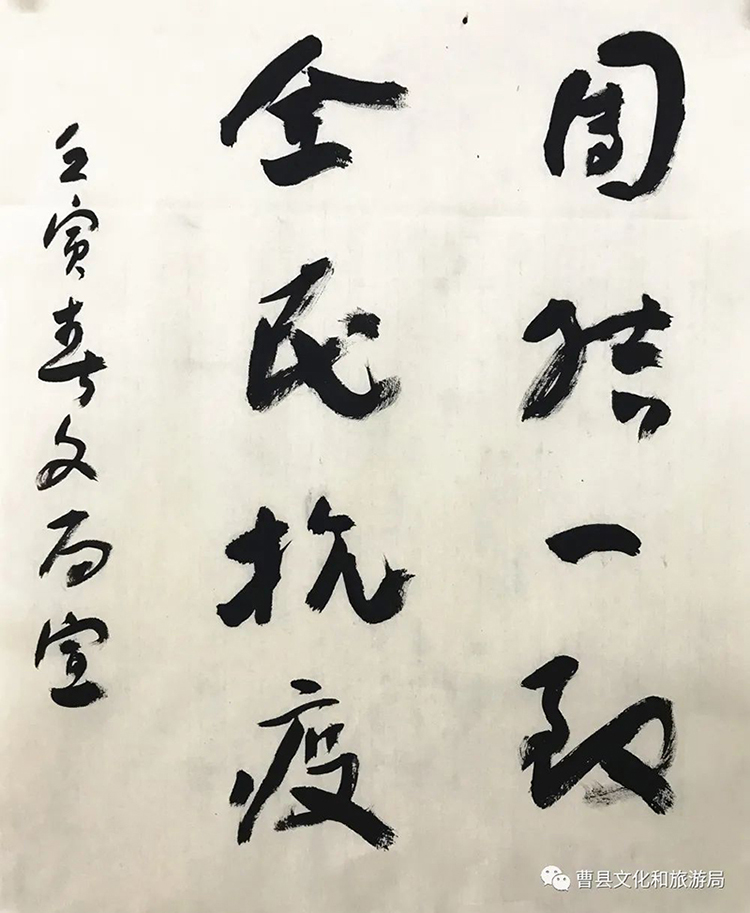 团结一致
全民抗疫
壬寅春文而宣
曹县文化和旅游局